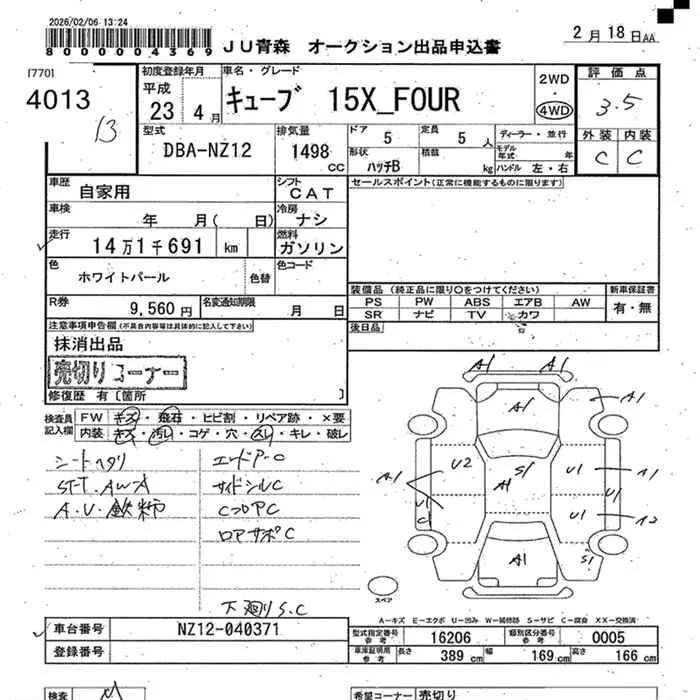 2026/02/06 13:24
8000004369
JU青森 オークション出品申込書
2月18日AA
[770]
4013
13
初度登録年月
平成
23 4月
車名・グレード
キューブ 15X_FOUR
2WD
・
4WD
評価点
3.5
外装 内装
C C
型式
DBA-NZ12
排気量
1498
CC
ドア
5
定員
5 人
ディーラー・並行
形状
ハッチB
積載
kg
モデル
年式 年
ハンドル 左・右
車歴
自家用
シフト
CAT
セールスポイント(正常に機能するものに限ります)
車検
年 月( 日)
冷房
ナシ
走行
14万1千691 km
燃料
ガソリン
色
ホワイトパール
色替
色コード
R券
9,560 円
名変通知期限
月 日
装備品 (純正品に限り○をつけてください)
PS PW ABS エアB AW
SR ナビ TV カワ
新車保証書
有・無
後日品
注意事項申告欄(不具合内容等は具体的に記入して下さい)
抹消出品
売切りコーナー
修復歴 有〔箇所 〕
検査員
記入欄
FW キズ・飛石・ヒビ割・リペア跡・×要
内装 キズ・汚レ・コゲ・穴・スレ・キレ・破レ
シートヘタリ
エンドアーC
サイドシルC
CフロアC
ロアサポC
下廻りS.C
A1 A1
A1
A1
A1
U2
S1
A1
U1
A1
U1
C1
U1
U1
A2
A1
S1
スペア
A-キズ E-エクボ U-凹み W-補修跡 S-サビ C-腐食 XX-交換済
車台番号 NZ12-040371
登録番号
型式指定番号
参考
16206
類別区分番号
参考
0005
車庫証明用
参考
長さ 389 cm 幅 169 cm 高さ 166 cm
検査
希望コーナー 売切り